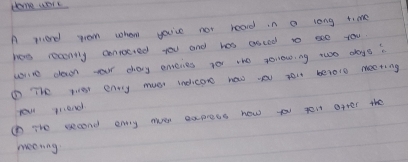 Home work
A friend from whom you've not heard in a long time
has recently contacted you and has asked to see you
write down your diary entries for the following two days :
① The first entry must indicate how you felt before meeting
your friend
② The second entry must express how you felt after the
meeting.